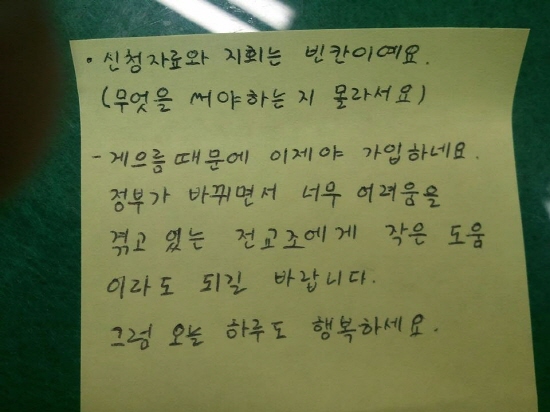 • 신청자료와 지회는 빈칸이예요.
(무엇을 써야하는지 몰라서요)
- 게으름때문에 이제야 가입하네요.
정부가 바뀌면서 너무 어려움을
겪고 있는 전교조에게 작은 도움
이라도 되길 바랍니다.
그럼 오늘 하루도 행복하세요.